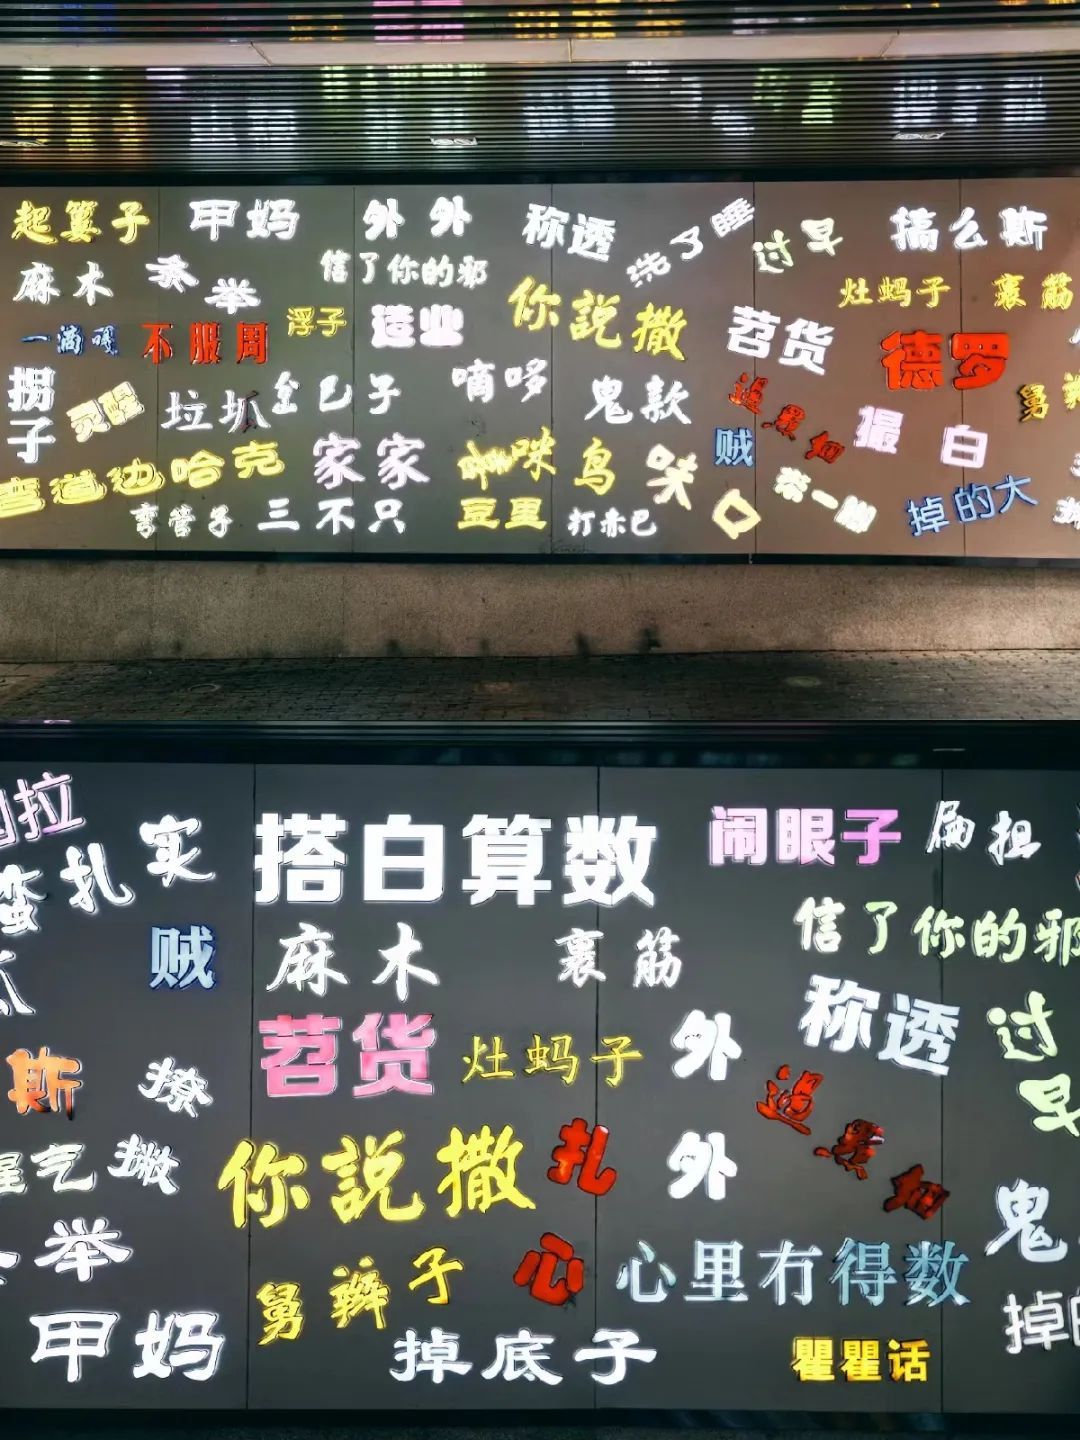 起篓子 甲妈 外外 称透 洗了睡 过早 搞么斯
麻木 信了你的邪 灶蚂子 裹筋
举 浮子 造业 你説撒 苕货
不服周 德罗
拐子 灵醒 垃圾 巴子 嘀哆 鬼款 过累烟 撮白 舅
弯道边哈克 家家 贼
鸟
弯管子 三不只 豆里 打赤巴 掉的大
拉 实 搭白算数 闹眼子 扁担
蛮扎 信了你的邪
贼 麻木 裹筋
苕货 灶蚂子 外外 称透 过早
斯 撩 过累烟
撒 你説撒 扎心 鬼
举 舅辫子 心里冇得数
甲妈 掉底子 瞿瞿话 掉的